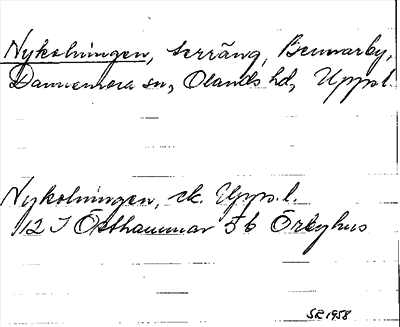 Nykolningen, terräng, Bennarby,
Dannemora sn, Olands hd, Upps.l.
Nykolningen, ek. Upps.l.
12 I Östhammar 5b Örbyhus
SR 1958